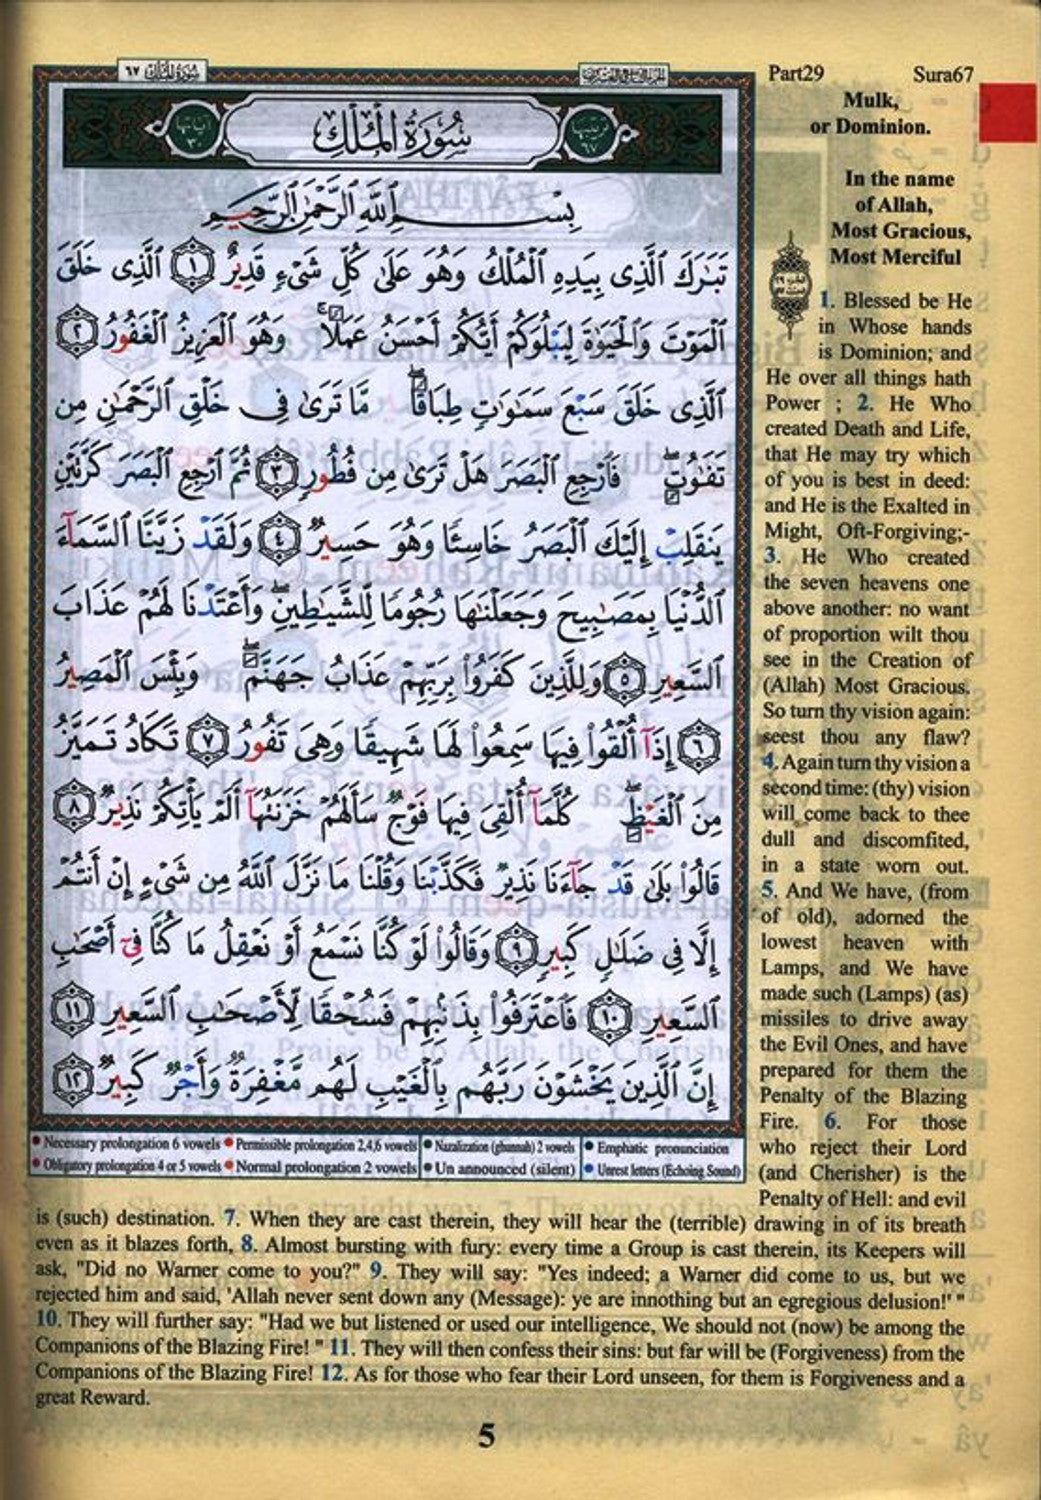 سورة الملك ٦٧
Part29 Sura67
Mulk,
or Dominion.
ترتيبها
٦٧
سُورَةُ الْمُلْكِ
آياتها
٣٠
In the name
of Allah,
Most Gracious,
Most Merciful
بِسْمِ ٱللَّهِ ٱلرَّحْمَٰنِ ٱلرَّحِيمِ
تَبَٰرَكَ ٱلَّذِى بِيَدِهِ ٱلْمُلْكُ وَهُوَ عَلَىٰ كُلِّ شَىْءٍ قَدِيرٌ ١ ٱلَّذِى خَلَقَ
ٱلْمَوْتَ وَٱلْحَيَوٰةَ لِيَبْلُوَكُمْ أَيُّكُمْ أَحْسَنُ عَمَلًا ۚ وَهُوَ ٱلْعَزِيزُ ٱلْغَفُورُ ٢
ٱلَّذِى خَلَقَ سَبْعَ سَمَٰوَٰتٍ طِبَاقًا ۖ مَّا تَرَىٰ فِى خَلْقِ ٱلرَّحْمَٰنِ مِن
تَفَٰوُتٍ ۖ فَٱرْجِعِ ٱلْبَصَرَ هَلْ تَرَىٰ مِن فُطُورٍ ٣ ثُمَّ ٱرْجِعِ ٱلْبَصَرَ كَرَّتَيْنِ
يَنقَلِبْ إِلَيْكَ ٱلْبَصَرُ خَاسِئًا وَهُوَ حَسِيرٌ ٤ وَلَقَدْ زَيَّنَّا ٱلسَّمَآءَ
ٱلدُّنْيَا بِمَصَٰبِيحَ وَجَعَلْنَٰهَا رُجُومًا لِّلشَّيَٰطِينِ ۖ وَأَعْتَدْنَا لَهُمْ عَذَابَ
ٱلسَّعِيرِ ٥ وَلِلَّذِينَ كَفَرُوا۟ بِرَبِّهِمْ عَذَابُ جَهَنَّمَ ۖ وَبِئْسَ ٱلْمَصِيرُ
٦ إِذَآ أُلْقُوا۟ فِيهَا سَمِعُوا۟ لَهَا شَهِيقًا وَهِىَ تَفُورُ ٧ تَكَادُ تَمَيَّزُ
مِنَ ٱلْغَيْظِ ۖ كُلَّمَآ أُلْقِىَ فِيهَا فَوْجٌ سَأَلَهُمْ خَزَنَتُهَآ أَلَمْ يَأْتِكُمْ نَذِيرٌ ٨
قَالُوا۟ بَلَىٰ قَدْ جَآءَنَا نَذِيرٌ فَكَذَّبْنَا وَقُلْنَا مَا نَزَّلَ ٱللَّهُ مِن شَىْءٍ إِنْ أَنتُمْ
إِلَّا فِى ضَلَٰلٍ كَبِيرٍ ٩ وَقَالُوا۟ لَوْ كُنَّا نَسْمَعُ أَوْ نَعْقِلُ مَا كُنَّا فِىٓ أَصْحَٰبِ
ٱلسَّعِيرِ ١٠ فَٱعْتَرَفُوا۟ بِذَنۢبِهِمْ فَسُحْقًا لِّأَصْحَٰبِ ٱلسَّعِيرِ ١١
إِنَّ ٱلَّذِينَ يَخْشَوْنَ رَبَّهُم بِٱلْغَيْبِ لَهُم مَّغْفِرَةٌ وَأَجْرٌ كَبِيرٌ ١٢
1. Blessed be He
in Whose hands
is Dominion; and
He over all things hath
Power ; 2. He Who
created Death and Life,
that He may try which
of you is best in deed:
and He is the Exalted in
Might, Oft-Forgiving;-
3. He Who created
the seven heavens one
above another: no want
of proportion wilt thou
see in the Creation of
(Allah) Most Gracious.
So turn thy vision again:
seest thou any flaw?
4. Again turn thy vision a
second time: (thy) vision
will come back to thee
dull and discomfited,
in a state worn out.
5. And We have, (from
of old), adorned the
lowest heaven with
Lamps, and We have
made such (Lamps) (as)
missiles to drive away
the Evil Ones, and have
prepared for them the
Penalty of the Blazing
Fire. 6. For those
who reject their Lord
(and Cherisher) is the
Penalty of Hell: and evil
Necessary prolongation 6 vowels Permissible prolongation 2,4,6 vowels Nazalization (ghunnah) 2 vowels Emphatic pronunciation
Obligatory prolongation 4 or 5 vowels Normal prolongation 2 vowels Un announced (silent) Unrest letters (Echoing Sound)
is (such) destination. 7. When they are cast therein, they will hear the (terrible) drawing in of its breath
even as it blazes forth, 8. Almost bursting with fury: every time a Group is cast therein, its Keepers will
ask, "Did no Warner come to you?" 9. They will say: "Yes indeed; a Warner did come to us, but we
rejected him and said, 'Allah never sent down any (Message): ye are innothing but an egregious delusion!' "
10. They will further say: "Had we but listened or used our intelligence, We should not (now) be among the
Companions of the Blazing Fire! " 11. They will then confess their sins: but far will be (Forgiveness) from the
Companions of the Blazing Fire! 12. As for those who fear their Lord unseen, for them is Forgiveness and a
great Reward.
5